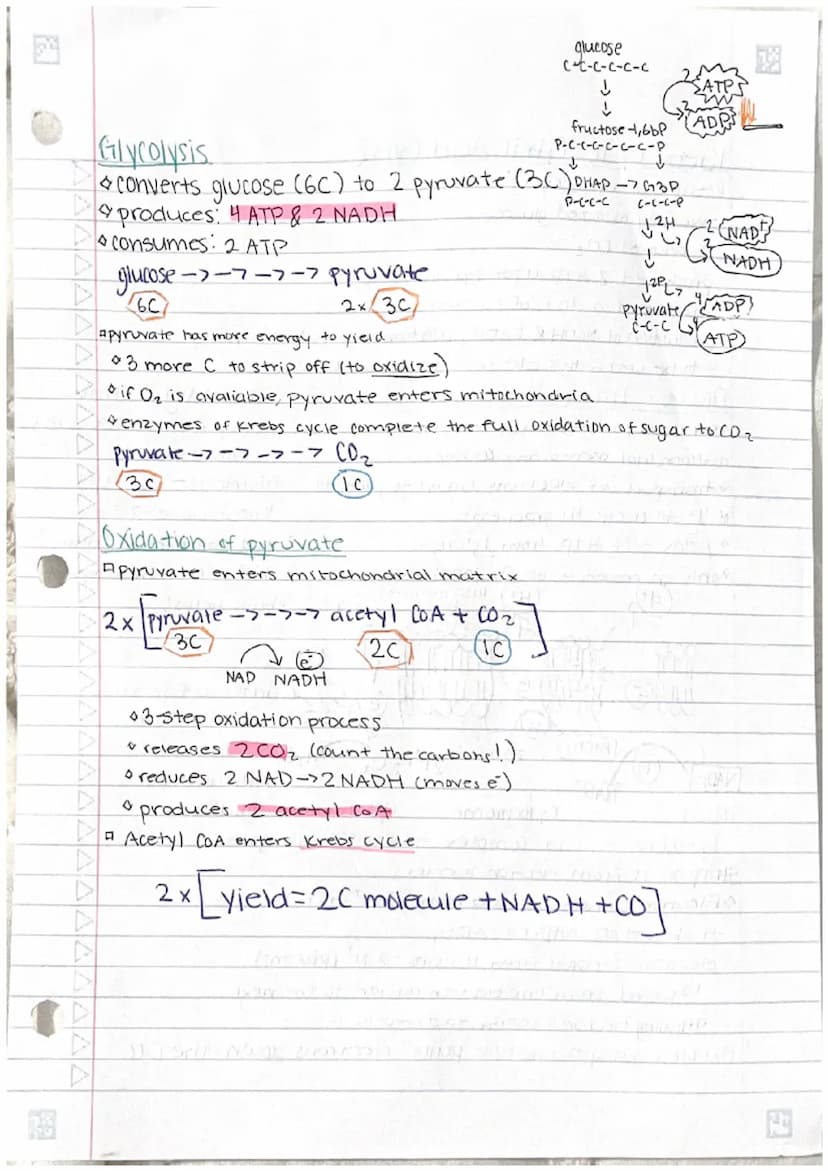 glucose
C-C-C-C-C-C
2 ATP
2 ADP
fructose-1,6bP
P-C-C-C-C-C-C-P
Glycolysis
converts glucose (6C) to 2 pyruvate (3C)
DHAP -> G3P
P-C-C-C C-C-C-P
produces: 4 ATP & 2 NADH
2H
2 NAD+
2 NADH
consumes: 2 ATP
glucose ->->->-> pyruvate
6C 2x 3C
2Pi
pyruvate
C-C-C
4 ADP
4 ATP
pyruvate has more energy to yield
3 more C to strip off (to oxidize)
if O2 is avaliable, pyruvate enters mitochondria
enzymes of Krebs cycle complete the full oxidation of sugar to CO2
pyruvate ->->->-> CO2
3C 1C
Oxidation of pyruvate
pyruvate enters mitochondrial matrix
2x [pyruvate ->->-> acetyl CoA + CO2]
3C 2C 1C
e-
NAD NADH
3-step oxidation process
releases 2CO2 (count the carbons!)
reduces 2 NAD->2 NADH (moves e-)
produces 2 acetyl CoA
Acetyl CoA enters Krebs cycle
2x [yield=2C molecule +NADH +CO]